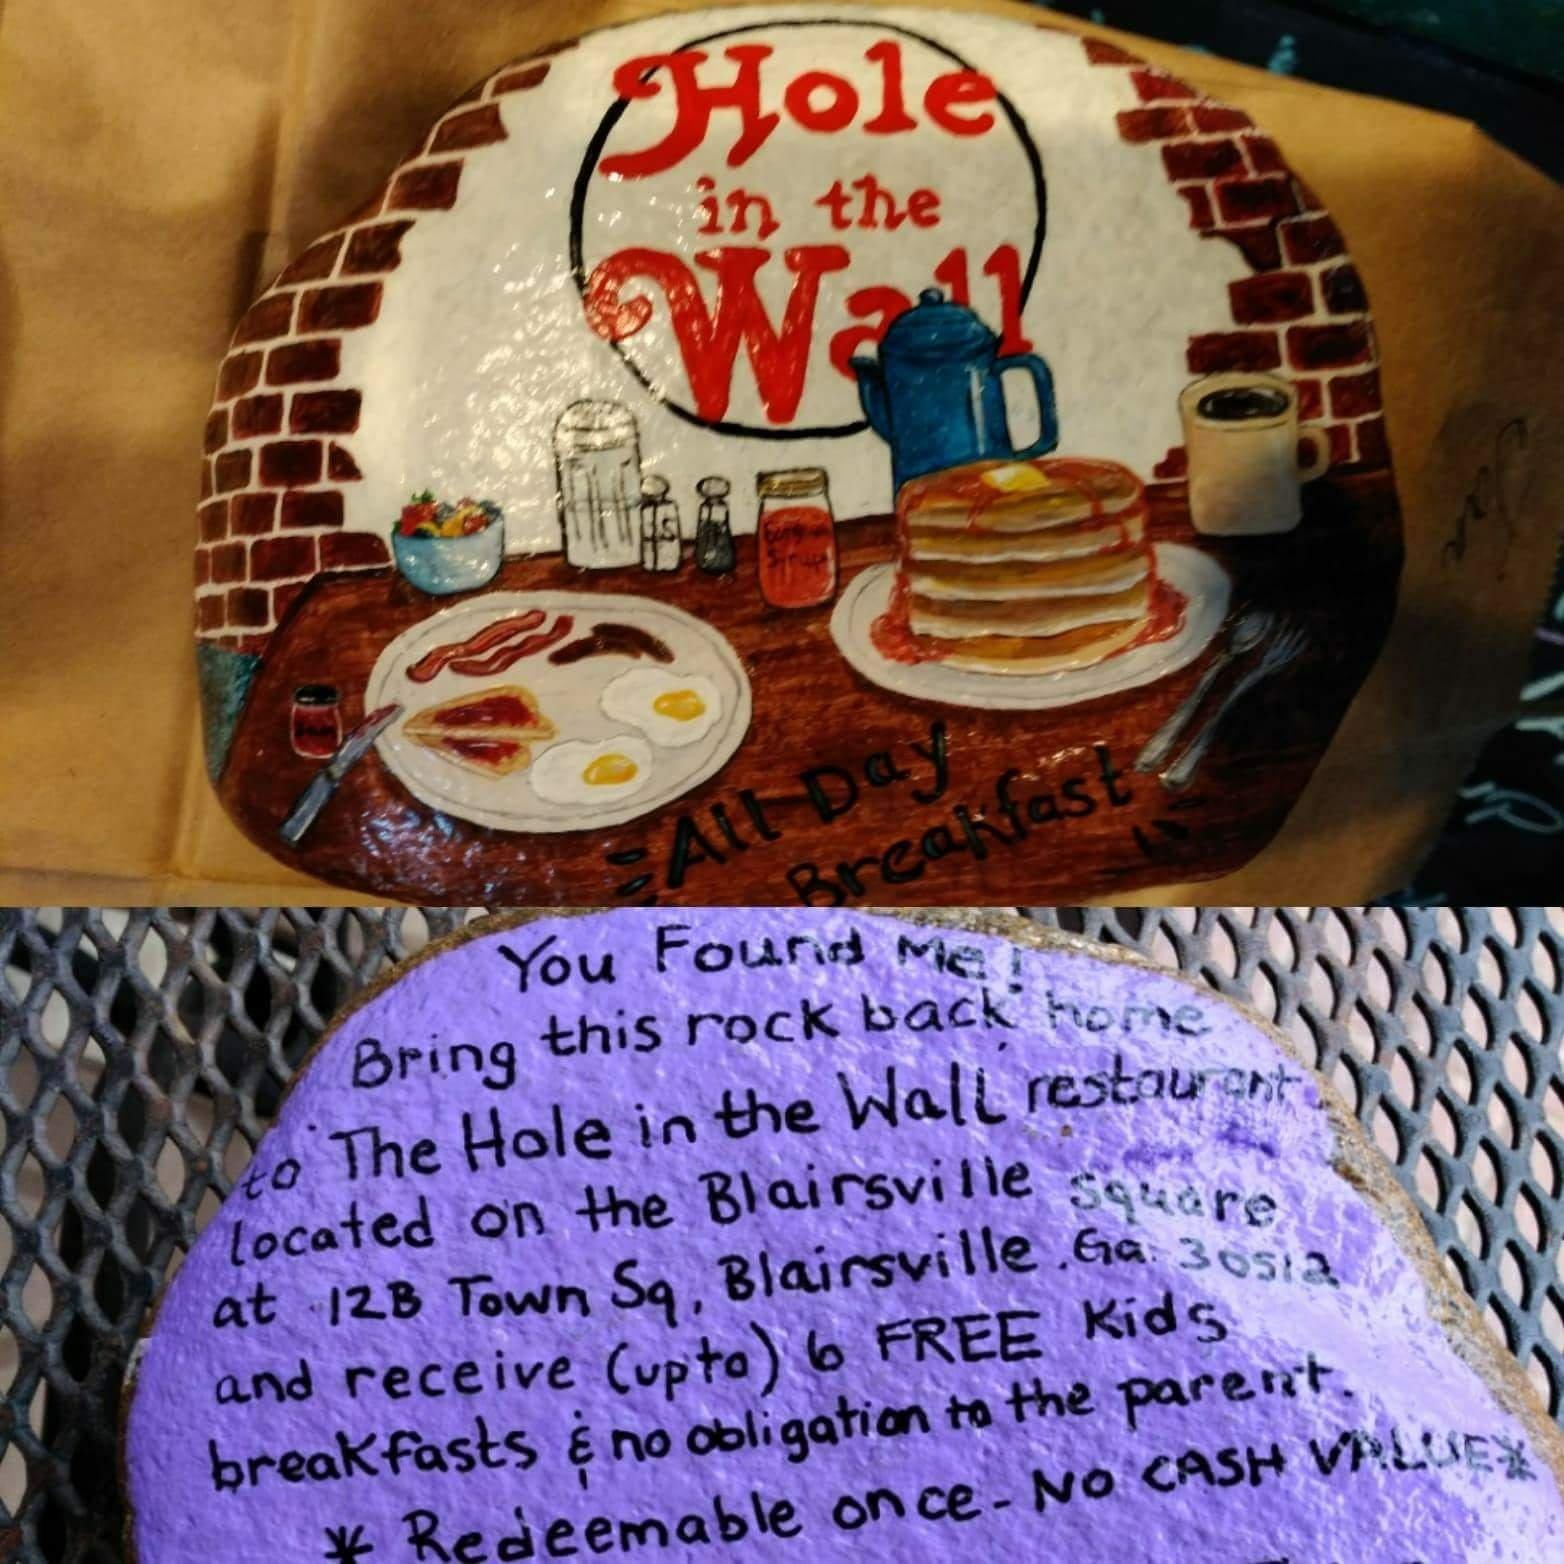 Hole
in the
Wall
All Day
Breakfast
You Found Me!
Bring this rock back home
to The Hole in the Wall restaurant
located on the Blairsville square
at 12B Town Sq, Blairsville. Ga. 30512
and receive (up to) 6 FREE Kids
breakfasts & no obligation to the parent.
* Redeemable once - NO CASH VALUE*